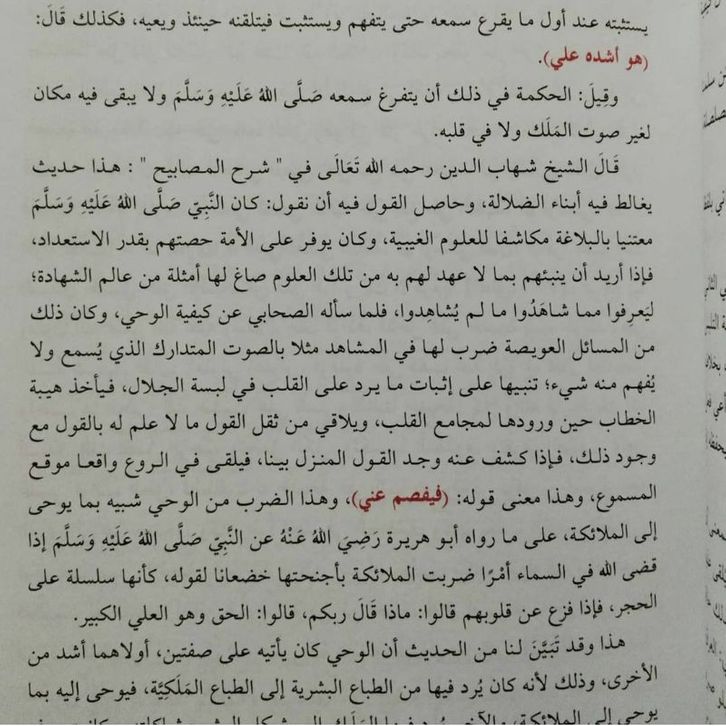 يستثبته عند أول ما يقرع سمعه حتى يتفهم ويستثبت فيتلقنه حينئذ ويعيه، فكذلك قَالَ:
(هو أشده علي).
وقِيلَ: الحكمة في ذلك أن يتفرغ سمعه صَلَّى اللهُ عَلَيْهِ وَسَلَّمَ ولا يبقى فيه مكان
لغير صوت المَلَك ولا في قلبه.
قَالَ الشيخ شهاب الدين رحمه الله تَعَالَى في " شرح المصابيح " : هذا حديث
يغالط فيه أبناء الضلالة، وحاصل القول فيه أن نقول: كان النَّبِيّ صَلَّى اللهُ عَلَيْهِ وَسَلَّمَ
معتنيا بالبلاغة مكاشفا للعلوم الغيبية، وكان يوفر على الأمة حصتهم بقدر الاستعداد،
فإذا أريد أن ينبئهم بما لا عهد لهم به من تلك العلوم صاغ لها أمثلة من عالم الشهادة؛
ليَعرِفوا مما شاهَدُوا ما لم يُشاهِدوا، فلما سأله الصحابي عن كيفية الوحي، وكان ذلك
من المسائل العويصة ضرب لها في المشاهد مثلا بالصوت المتدارك الذي يُسمع ولا
يُفهم منه شيء؛ تنبيها على إثبات ما يرد على القلب في لبسة الجلال، فيأخذ هيبة
الخطاب حين ورودها لمجامع القلب، ويلاقي من ثقل القول ما لا علم له بالقول مع
وجود ذلك، فإذا كشف عنه وجد القول المنزل بينا، فيلقى في الروع واقعا موقع
المسموع، وهذا معنى قوله: (فيفصم عني)، وهذا الضرب من الوحي شبيه بما يوحى
إلى الملائكة، على ما رواه أبو هريرة رَضِيَ اللهُ عَنْهُ عن النَّبِيّ صَلَّى اللهُ عَلَيْهِ وَسَلَّمَ إذا
قضى الله في السماء أمْرًا ضربت الملائكة بأجنحتها خضعانا لقوله، كأنها سلسلة على
الحجر، فإذا فزع عن قلوبهم قالوا: ماذا قَالَ ربكم، قالوا: الحق وهو العلي الكبير.
هذا وقد تَبَيَّنَ لنا من الحديث أن الوحي كان يأتيه على صفتين، أولاهما أشد من
الأخرى، وذلك لأنه كان يُرد فيها من الطباع البشرية إلى الطباع المَلَكِيَّة، فيوحى إليه بما
يوحى إلى الملائكة، والأخرى يُرد فيها المَلَك إلى شكل البشر